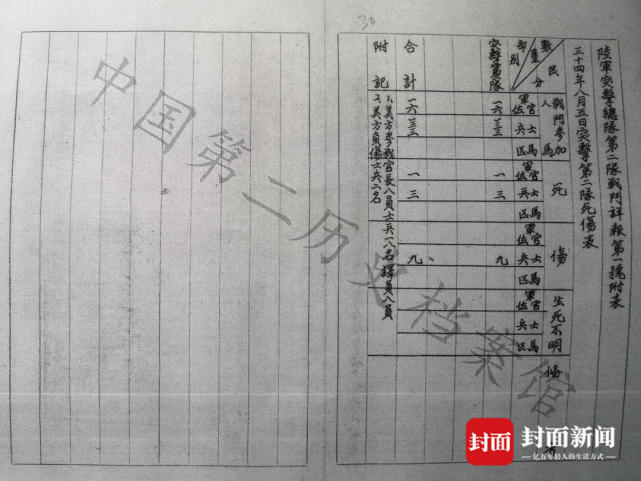 30
陸軍突擊總隊第二隊戰鬥詳報第一號附表
三十四年八月五日突擊第二隊死傷表
數量
區分
部別
戰鬥參加人馬
軍官佐
士兵
馬匹
死
軍官佐
士兵
馬匹
傷
軍官佐
士兵
馬匹
生死不明
軍官佐
士兵
馬匹
備
一六
一
三
九
合計
一六
一
三
九
附記
1、美方參戰官長八員士兵一八名譯員八員
2、美方負傷士兵二名
中国第二历史档案馆
封面
封面新闻
亿万年轻人的生活方式